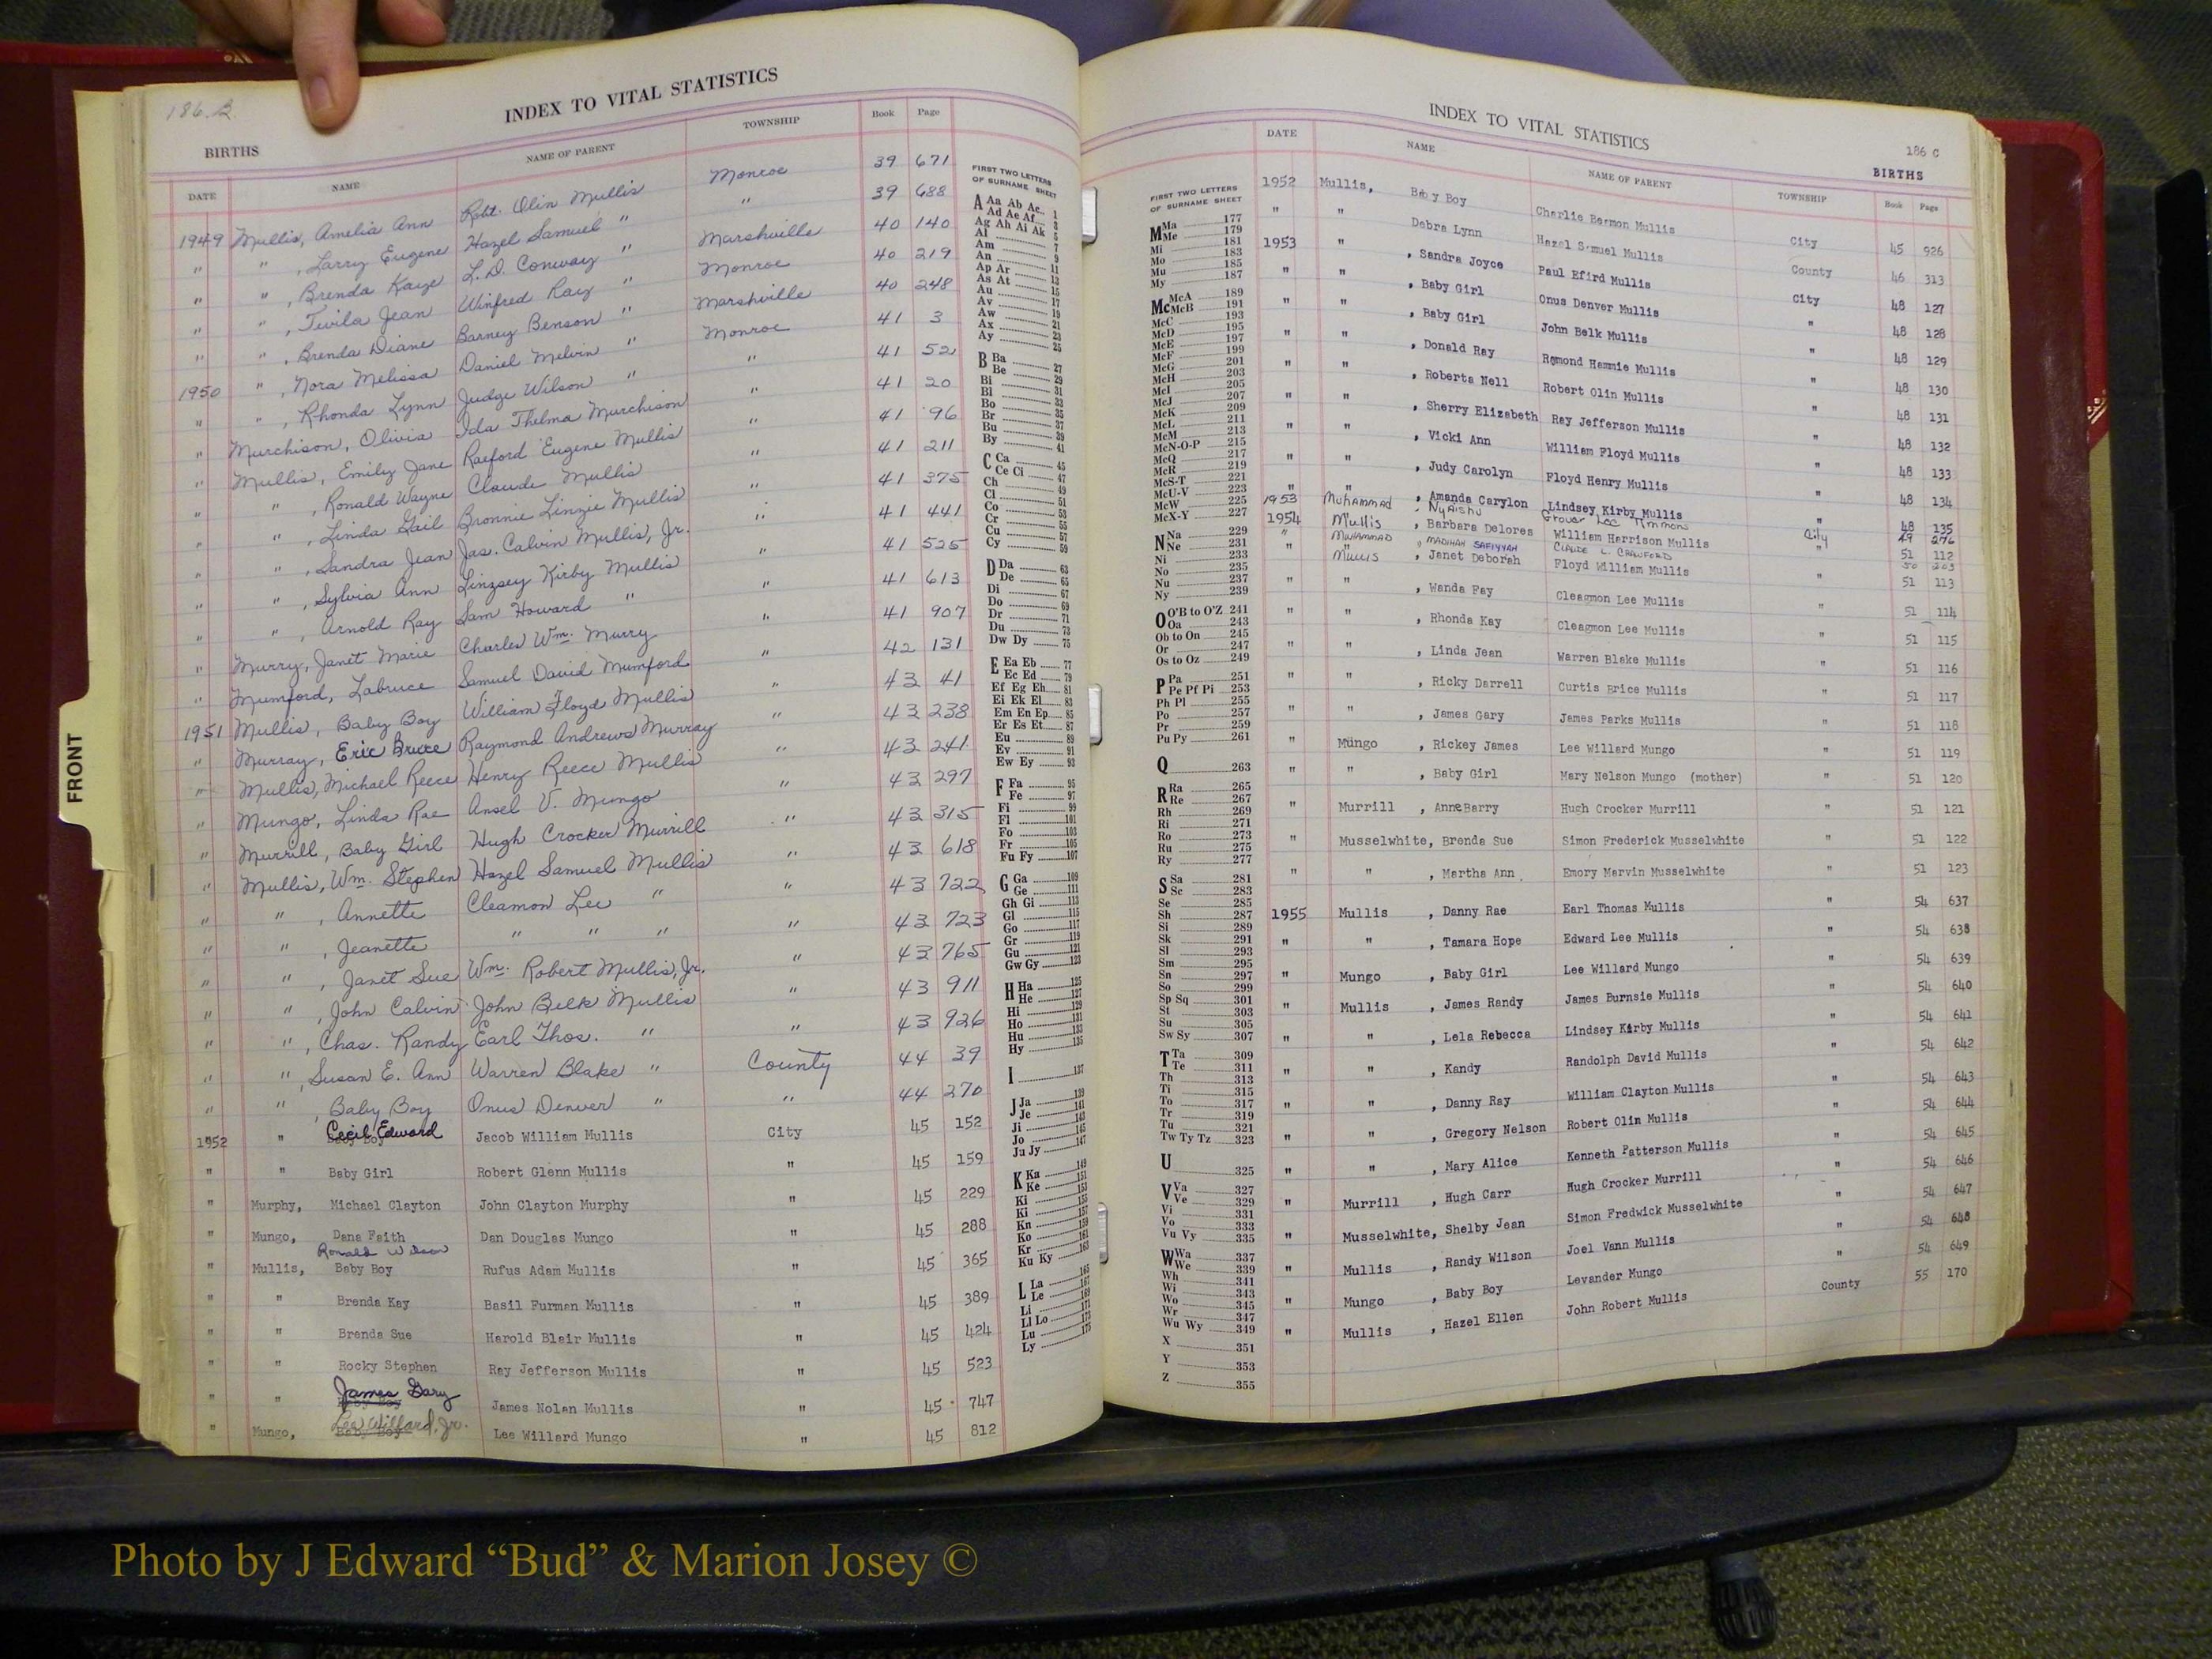 186 B
INDEX TO VITAL STATISTICS
BIRTHS
DATE NAME NAME OF PARENT TOWNSHIP Book Page
1949 Mullis, Amelia Ann Robt. Olin Mullis Monroe 39 671
" " , Larry Eugene Hazel Samuel " " 39 688
" " , Brenda Kaye L. D. Conway " Marshville 40 140
" " , Twila Jean Winfred Ray " Monroe 40 219
" " , Brenda Diane Barney Benson " Marshville 40 248
1950 " , Nora Melissa Daniel Melvin " Monroe 41 3
" " , Rhonda Lynn Judge Wilson " " 41 52
" Murchison, Olivia Ida Thelma Murchison " 41 20
" Mullis, Emily Jane Raeford Eugene Mullis " 41 96
" " , Ronald Wayne Claude Mullis " 41 211
" " , Linda Gail Bronnie Linzie Mullis " 41 375
" " , Sandra Jean Jas. Calvin Mullis, Jr. " 41 441
" " , Sylvia Ann Linzsey Kirby Mullis " 41 525
" " , Arnold Ray Sam Howard " " 41 613
" Murry, Janet Marie Charles Wm. Murry " 41 907
" Mumford, Labruce Samuel David Mumford " 42 131
1951 Mullis, Baby Boy William Floyd Mullis " 43 41
" Murray, Eric Bruce Raymond Andrews Murray " 43 238
" Mullis, Michael Reece Henry Reece Mullis " 43 241
" Mungo, Linda Rae Ansel V. Mungo " 43 297
" Murrill, Baby Girl Hugh Crocker Murrill " 43 315
" Mullis, Wm. Stephen Hazel Samuel Mullis " 43 618
" " , Annette Cleamon Lee " " 43 722
" " , Jeanette " " " " 43 723
" " , Janet Sue Wm. Robert Mullis, Jr. " 43 765
" " , John Calvin John Belk Mullis " 43 911
" " , Chas. Randy Earl Thos. " " 43 926
" " , Susan E. Ann Warren Blake " County 44 39
" " , Baby Boy Onus Denver " " 44 270
1952 " Cecil Edward Jacob William Mullis City 45 152
" " Baby Girl Robert Glenn Mullis " 45 159
" Murphy, Michael Clayton John Clayton Murphy " 45 229
" Mungo, Dana Faith Dan Douglas Mungo " 45 288
Ronald Wilson
" Mullis, Baby Boy Rufus Adam Mullis " 45 365
" " Brenda Kay Basil Furman Mullis " 45 389
" " Brenda Sue Harold Blair Mullis " 45 424
" " Rocky Stephen Ray Jefferson Mullis " 45 523
James Gary
" " Baby Boy James Nolan Mullis " 45 747
Lee Willard, Jr.
" Mungo, Baby Boy Lee Willard Mungo " 45 812
FIRST TWO LETTERS
OF SURNAME SHEET
A Aa Ab Ac 1
Ad Ae Af 3
Ag Ah Ai Ak 5
Al 7
Am 9
An 11
Ap Ar 13
As At 15
Au 17
Av 19
Aw 21
Ax 23
Ay 25
B Ba 27
Be 29
Bi 31
Bl 33
Bo 35
Br 37
Bu 39
By 41
C Ca 45
Ce Ci 47
Ch 49
Cl 51
Co 53
Cr 55
Cu 57
Cy 59
D Da 63
De 65
Di 67
Do 69
Dr 71
Du 73
Dw Dy 75
E Ea Eb 77
Ec Ed 79
Ef Eg Eh 81
Ei Ek El 83
Em En Ep 85
Er Es Et 87
Eu 89
Ev 91
Ew Ey 93
F Fa 95
Fe 97
Fi 99
Fl 101
Fo 103
Fr 105
Fu Fy 107
G Ga 109
Ge 111
Gh Gi 113
Gl 115
Go 117
Gr 119
Gu 121
Gw Gy 123
H Ha 125
He 127
Hi 129
Ho 131
Hu 133
Hy 135
I 137
J Ja 139
Je 141
Ji 143
Jo 145
Ju Jy 147
K Ka 149
Ke 151
Ki 153
Kl 155
Kn 159
Ko 161
Kr 163
Ku Ky
L La 165
Le 167
Li 169
Ll Lo 171
Lu 173
Ly 175
FRONT
INDEX TO VITAL STATISTICS
186 C
BIRTHS
FIRST TWO LETTERS
OF SURNAME SHEET
M Ma 177
Me 179
Mi 181
Mo 183
Mu 185
My 187
Mc McA 189
McB 191
McC 193
McD 195
McE 197
McF 199
McG 201
McH 203
McI 205
McJ 207
McK 209
McL 211
McM 213
McN-O-P 215
McQ 217
McR 219
McS-T 221
McU-V 223
McW 225
McX-Y 227
N Na 229
Ne 231
Ni 233
No 235
Nu 237
Ny 239
O O'B to O'Z 241
Oa 243
Ob to On 245
Or 247
Os to Oz 249
P Pa 251
Pe Pf Pi 253
Ph Pl 255
Po 257
Pr 259
Pu Py 261
Q 263
R Ra 265
Re 267
Rh 269
Ri 271
Ro 273
Ru 275
Ry 277
S Sa 281
Sc 283
Se 285
Sh 287
Si 289
Sk 291
Sl 293
Sm 295
Sn 297
So 299
Sp Sq 301
St 303
Su 305
Sw Sy 307
T Ta 309
Te 311
Th 313
Ti 315
To 317
Tr 319
Tu 321
Tw Ty Tz 323
U 325
V Va 327
Ve 329
Vi 331
Vo 333
Vu Vy 335
W Wa 337
We 339
Wh 341
Wi 343
Wo 345
Wr 347
Wu Wy 349
X 351
Y 353
Z 355
DATE NAME NAME OF PARENT TOWNSHIP Book Page
1952 Mullis, Baby Boy Charlie Beamon Mullis City 45 926
" " Debra Lynn Hazel Samuel Mullis County 46 313
1953 " , Sandra Joyce Paul Efird Mullis City 48 127
" " , Baby Girl Onus Denver Mullis " 48 128
" " , Baby Girl John Belk Mullis " 48 129
" " , Donald Ray Remond Hammie Mullis " 48 130
" " , Roberta Nell Robert Olin Mullis " 48 131
" " , Sherry Elizabeth Ray Jefferson Mullis " 48 132
" " , Vicki Ann William Floyd Mullis " 48 133
" " , Judy Carolyn Floyd Henry Mullis " 48 134
" " , Amanda Carylon Lindsey Kirby Mullis " 48 135
1953 Muhammad , Nyaishu Grover Lee Timmons 49 276
1954 Mullis , Barbara Delores William Harrison Mullis City 51 112
" Muhammad , Madihah Safiyyah Claude L. Crawford " 50 203
" Mullis , Janet Deborah Floyd William Mullis " 51 113
" " , Wanda Fay Cleagmon Lee Mullis " 51 114
" " , Rhonda Kay Cleagmon Lee Mullis " 51 115
" " , Linda Jean Warren Blake Mullis " 51 116
" " , Ricky Darrell Curtis Brice Mullis " 51 117
" " , James Gary James Parks Mullis " 51 118
" Mungo , Rickey James Lee Willard Mungo " 51 119
" " , Baby Girl Mary Nelson Mungo (mother) " 51 120
" Murrill , Anne Barry Hugh Crocker Murrill " 51 121
" Musselwhite, Brenda Sue Simon Frederick Musselwhite " 51 122
" " , Martha Ann Emory Marvin Musselwhite " 51 123
1955 Mullis , Danny Rae Earl Thomas Mullis " 54 637
" " , Tamara Hope Edward Lee Mullis " 54 638
" Mungo , Baby Girl Lee Willard Mungo " 54 639
" Mullis , James Randy James Burnsie Mullis " 54 640
" " , Lela Rebecca Lindsey Kirby Mullis " 54 641
" " , Kandy Randolph David Mullis " 54 642
" " , Danny Ray William Clayton Mullis " 54 643
" " , Gregory Nelson Robert Olin Mullis " 54 644
" " , Mary Alice Kenneth Patterson Mullis " 54 645
" Murrill , Hugh Carr Hugh Crocker Murrill " 54 646
" Musselwhite, Shelby Jean Simon Fredwick Musselwhite " 54 647
" Mullis , Randy Wilson Joel Vann Mullis " 54 648
" Mungo , Baby Boy Levander Mungo " 54 649
" Mullis , Hazel Ellen John Robert Mullis County 55 170
Photo by J Edward “Bud” & Marion Josey ©